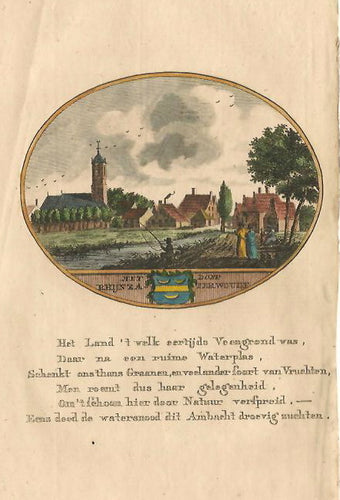 HET DORP
RHIJNZATERWOUDE
Het Land 't welk eertijds Veengrond was,
Daar na een ruime Waterplas,
Schenkt ons thans Graanen, en veelander foort van Vruchten,
Men roemt dus haar gelegenheid,
Om 't schoon hier door Natuur verspreid. —
Eens deed de watersnood dit Ambacht droevig zuchten.